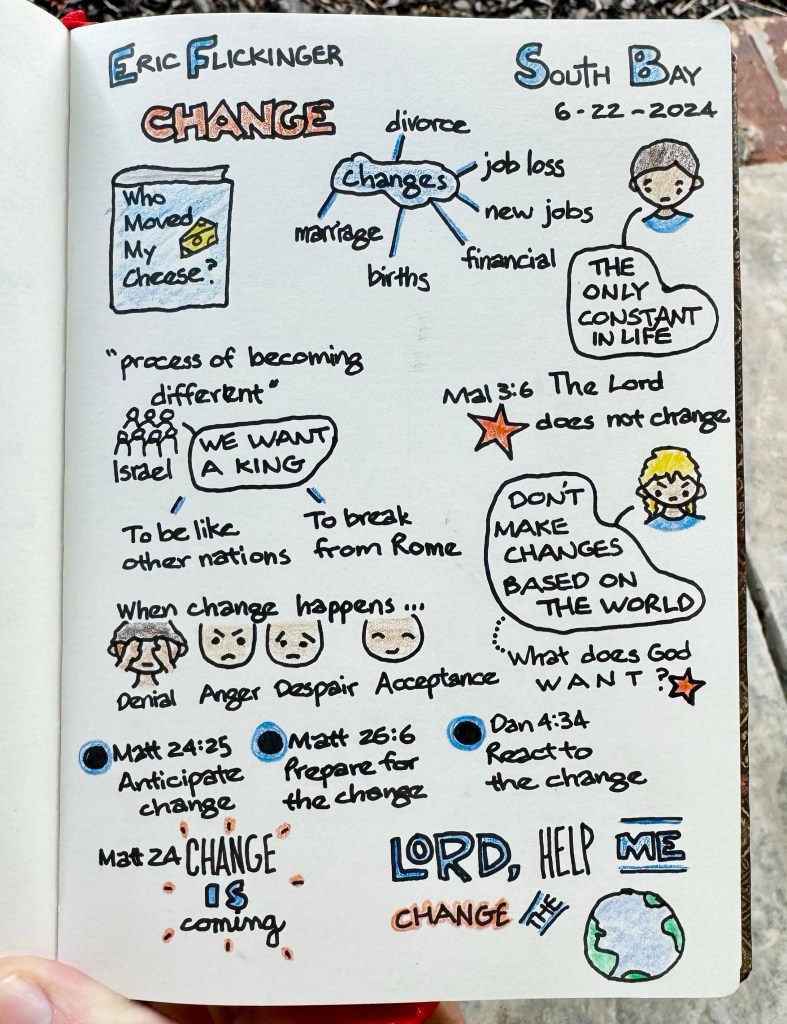 ERIC FLICKINGER
SOUTH BAY
6-22-2024
CHANGE
Who
Moved
My
Cheese?
changes
divorce
job loss
new jobs
financial
births
marriage
THE
ONLY
CONSTANT
IN LIFE
"process of becoming
different"
Israel
WE WANT
A KING
To be like
other nations
To break
from Rome
Mal 3:6 The Lord
does not change
DON'T
MAKE
CHANGES
BASED ON
THE WORLD
What does God
WANT?
When change happens...
Denial Anger Despair Acceptance
Matt 24:25
Anticipate
change
Matt 26:6
Prepare for
the change
Dan 4:34
React to
the change
Matt 24 CHANGE
IS
coming
LORD, HELP ME
CHANGE THE